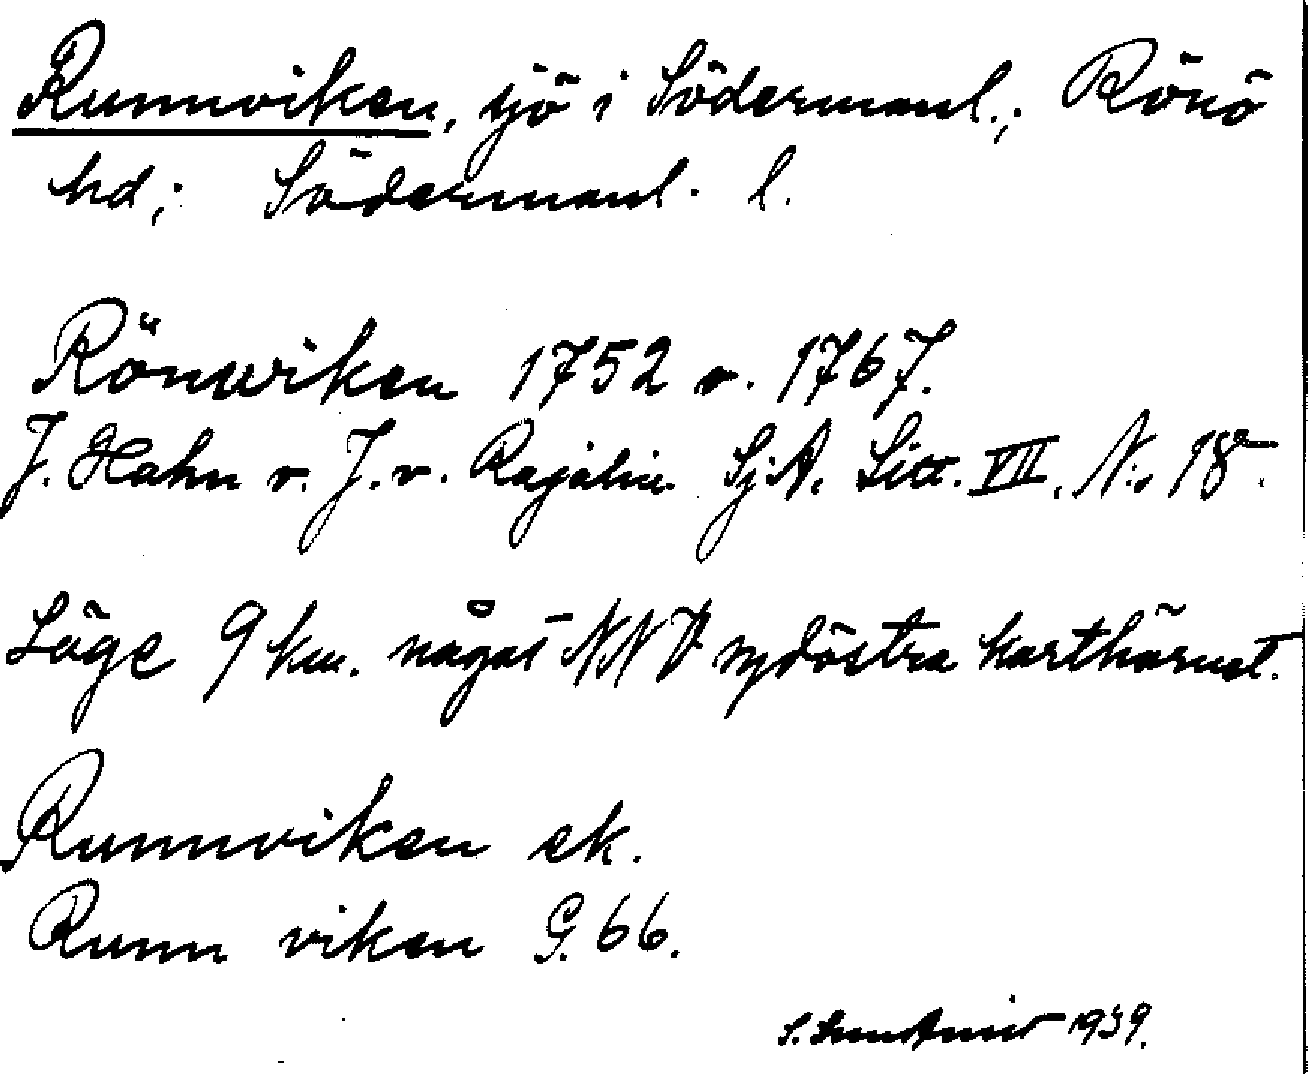 Runnviken, sjö i Södermanl.; Rönö
hd; Södermanl. l.
Rönwiken 1752 o. 1767.
J. Hahn o. J. v. Rajalin SjA. Litt. VII. N:o 18.
Läge 9 km. något NNV sydöstra karthörnet.
Runnviken ek.
Runn viken G. 66.
S. 1939.